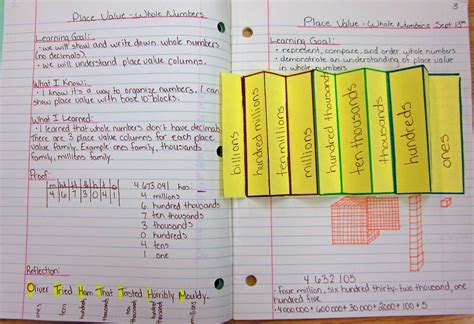 Place Value - Whole Numbers
Learning Goal:
• we will show and write down whole numbers
(no decimals).
• we will understand place value columns.
What I Know:
• I know it's a way to organize numbers. I can
show place value with base 10 blocks.
What I Learned:
• I learned that whole numbers don't have decimals.
There are 3 place value columns for each place
value family. Example ones family, thousands
family, millions family.
Proof:
m hth tth th h t o
4 6 7 3 0 4 1
4 673 041 has:
4 millions
6 hundred thousands
7 ten thousands
3 thousands
0 hundreds
4 tens
1 one
Reflection:
Oliver Tried Ham That Tasted Horribly Mouldy-
ones
tens
3
Place Value - Whole Numbers Sept. 13th
Learning Goal:
• represent, compare, and order whole numbers
• demonstrate an understanding of place value
in whole numbers
billions
hundred millions
ten millions
millions
hundred thousands
ten thousands
thousands
hundreds
ones
4 632 105
• four million, six hundred thirty-two thousand, one
hundred five
• 4 000 000 + 600 000 + 30 000 + 2000 + 100 + 5